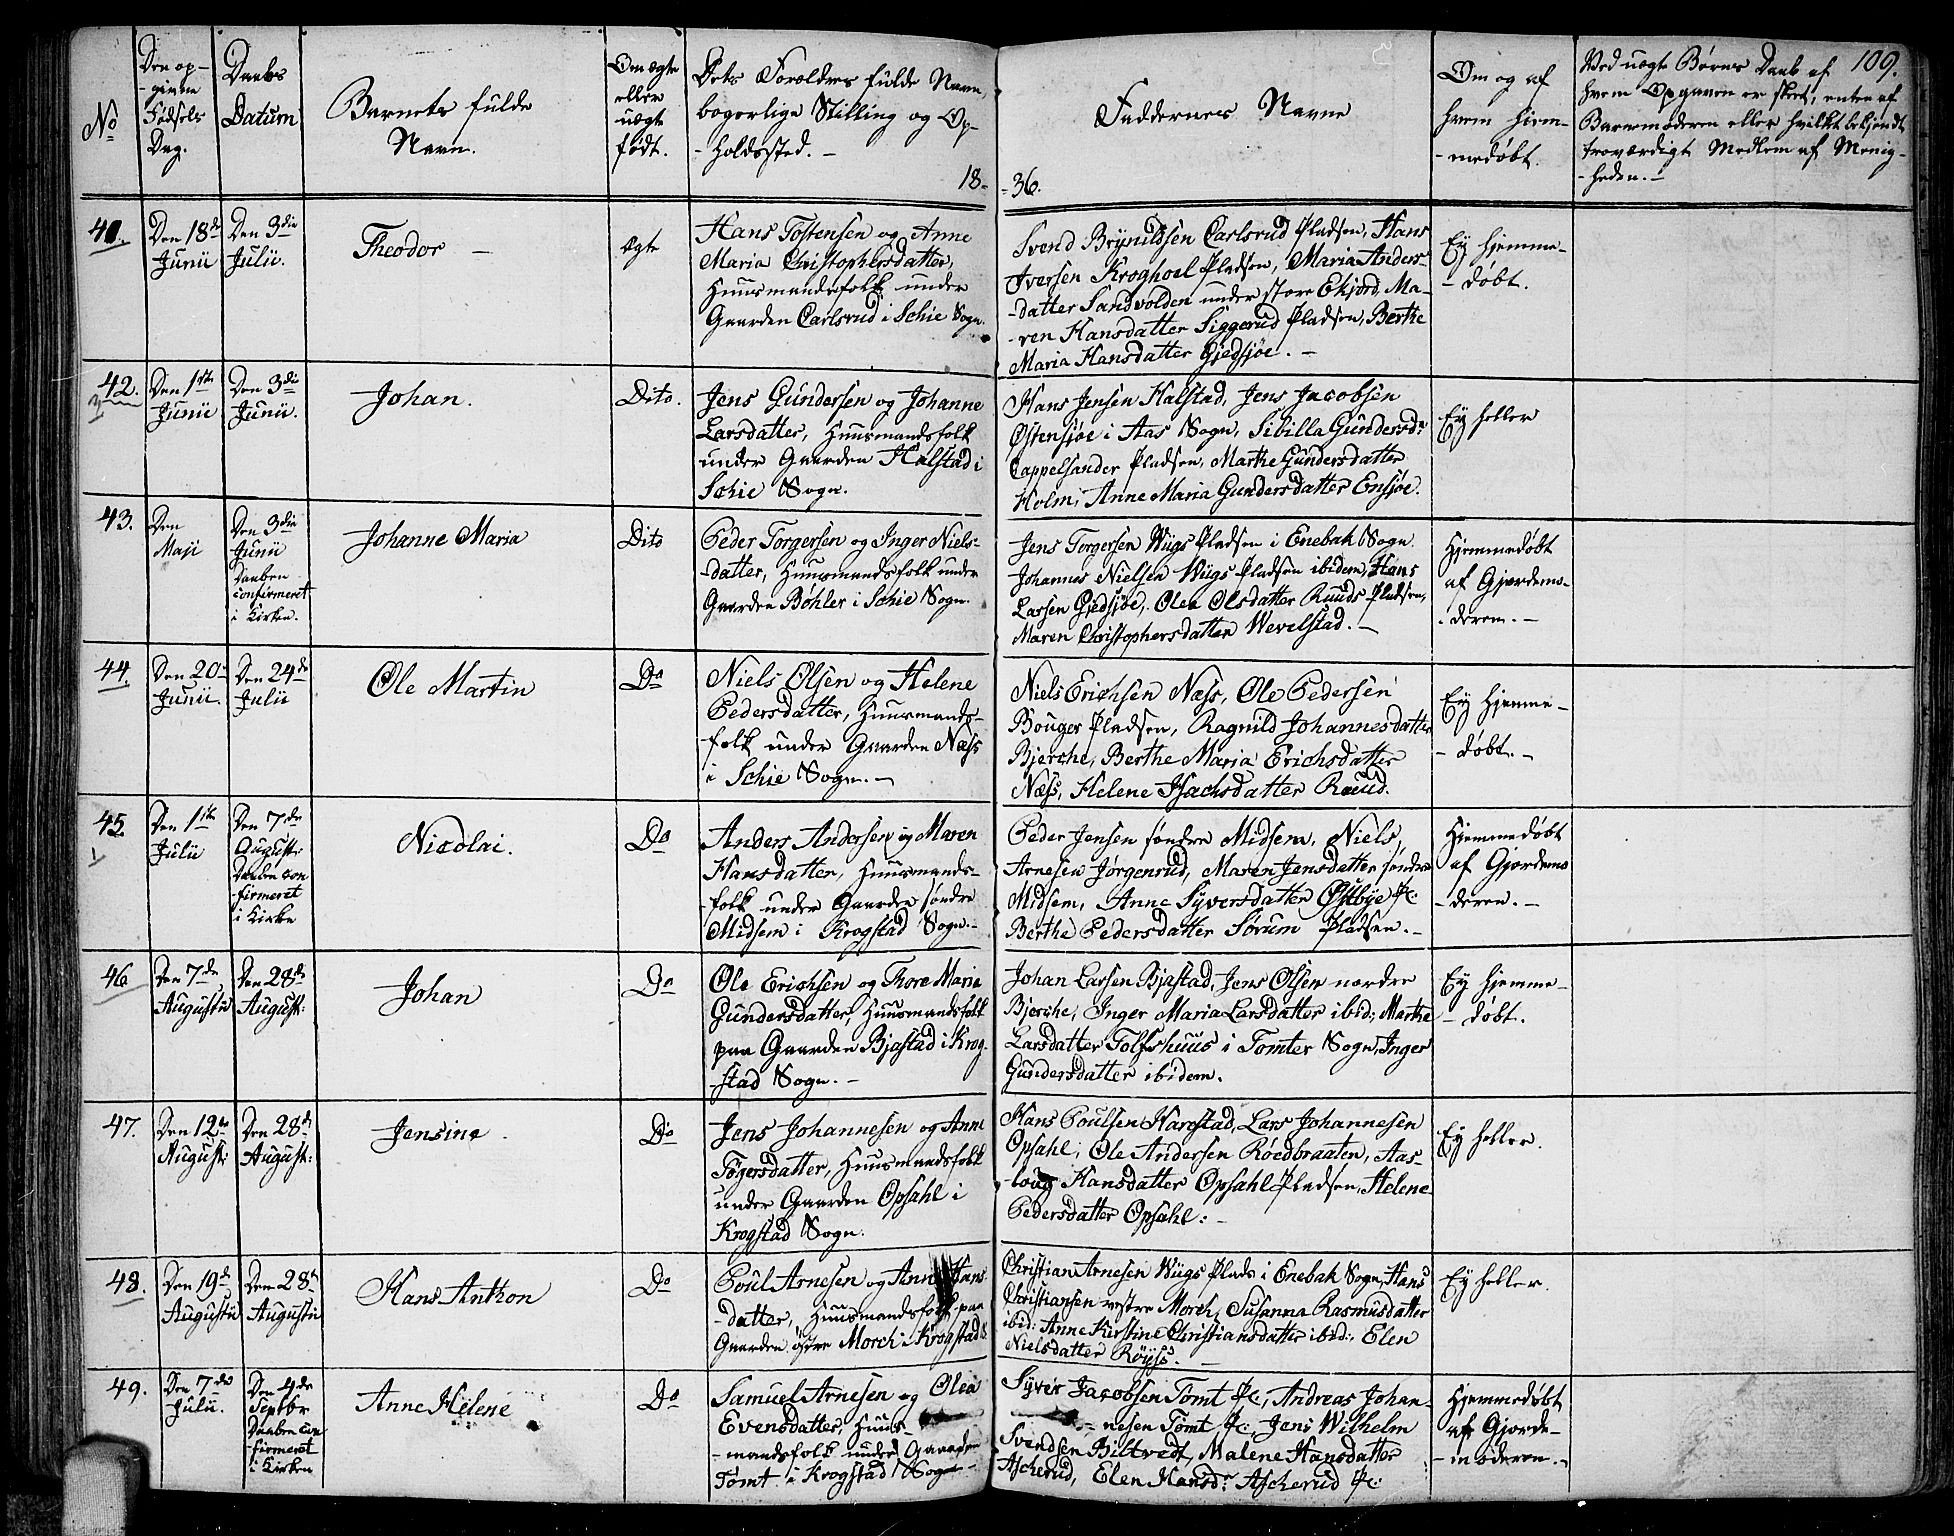 109.
No
Den op-
-given
Fødsels
Dag.
Daabs
Datum
Barnets fulde
Navn.
Om ægte
eller
uægte
født.
Dets Forældres fulde Navn,
borgerlige Stilling og Op-
-holdssted. -
18-
Faddernes Navne
-36.
Om og af
hvem hiem-
-medøbt.
Ved uægte Børns Daab af
hvem Opgaven er skeet, enten af
Barnemoderen eller hvilket bekjendt
troværdigt Medlem af Menig-
-heden. -
41.
Den 18de
Junii
Den 3die
Julii.
Theodor -
ægte
Hans Tostensen og Anne
Maria Christophersdatter,
Huusmandsfolk under
Gaarden Carlsrud i Schie Sogn.
Svend Brynildsen Carlsrud Pladsen, Hans
Iversen Kroghoel Pladsen, Maria Anders-
-datter Sandvolden under store Ekjord, Ma-
-ren Hansdatter Siggerud Pladsen, Berthe
Maria Hansdatter Gjedsjøe. -
Ey hjemme-
-døbt.
42.
Den 1ste
Junii
Den 3die
Junii.
Johan.
Dito.
Jens Gundersen og Johanne
Larsdatter, Huusmandsfolk
under Gaarden Halstad i
Schie Sogn.
Hans Jensen Halstad, Jens Jacobsen
Østensjøe i Aas Sogn, Sibilla Gundersdr
Cappelsander Pladsen, Marthe Gundersdatter
Holm, Anne Maria Gundersdatter Ensjøe.
Ey heller
43.
Den
Maji
Den 3die
Junii
Daaben
confirmeret
i Kirken.
Johanne Maria
Dito
Peder Torgersen og Inger Niels-
-datter, Huusmandsfolk under
Gaarden Bøhler i Schie Sogn.
Jens Torgersen Wiigs Pladsen i Enebak Sogn.
Johannes Nielsen Wiigs Pladsen ibidem, Hans
Larsen Gjedsjøe, Olea Olsdatter Ruuds Pladsen,
Maren Christophersdatter Wevelstad. -
Hjemmedøbt
af Gjordemo-
-deren. -
44.
Den 20de
Junii.
Den 24de
Julii
Ole Martin
Do
Niels Olsen og Helene
Pedersdatter, Huusmands-
-folk under Gaarden Næss
i Schie Sogn. -
Niels Erichsen Næss, Ole Pedersen
Bouger Pladsen, Ragnild Johannesdatter
Bjerche, Berthe Maria Erichsdatter
Næss, Helene Isachsdatter Ruud.
Ey hjemme-
-døbt. -
45.
Den 1ste
Julii
Den 7de
August:
Daaben con
-firmeret
i Kirke
Nicolai.
Do
Anders Andersen og Maren
Hansdatter, Huusmands-
-folk under Gaarden søndre
Midsem i Krogstad Sogn. -
Peder Jensen søndre Midsem, Niels
Arnesen Jørgenrud, Maren Jensdatter søndre
Midsem, Anne Syversdatter Østbye Pl:
Berthe Pedersdatter Sørum Pladsen. -
Hjemmedøbt
af Gjordemo
-deren. -
46
Den 7de
Augustii
Den 28de
August:
Johan
Do
Ole Erichsen og Thore Maria
Gundersdatter, Huusmandsfolk
paa Gaarden Bjastad i Krog-
-stad Sogn. -
Johan Larsen Bjastad, Jens Olsen nordre
Bjerche, Inger Maria Larsdatter ibid:, Marthe
Larsdatter Tolfshuus i Tomter Sogn, Inger
Gundersdatter ibidem.
Ey hjemme-
-døbt.
47.
Den 12te
August:
Den 28de
August:
Jensine.
Do
Jens Johannesen og Anne
Tøgersdatter, Huusmandsfolk
under Gaarden Opsahl i
Krogstad Sogn.
Hans Poulsen Harestad, Lars Johannesen
Opsahl, Ole Andersen Røedbraaten, Aas-
-loug Hansdatter Opsahl Pladsen, Helene
Pedersdatter Opsahl: -
Ey heller.
48.
Den 19de
Augustii
Den 28de
Augustii
Hans Anthon
Do
Poul Arnesen og Anne Hans-
-datter, Huusmandsfolk paa
Gaarden østre Morch i Krogstad S.
Christian Arnesen Wiigs Plads i Enebak Sogn, Hans
Christiansen vestre Morch, Susanna Rasmusdatter
ibid: Anne Kirstine Christiansdatter ibid:, Elen
Nielsdatter Røyss. -
Ey heller.
49.
Den 7de
Julii.
Den 4de
Septbr
Daaben con
-firmeret
i Kirken
Anne Helene
Do
Samuel Arnesen og Olea
Evensdatter, Huus-
-mandsfolk under Gaarden
Tomt i Krogstad Sogn -
Syver Jacobsen Tomt Pl:, Andreas Johan-
-nesen Tomt Pl:, Jens Wilhelm
Svendsen Biltvedt, Malene Hansdatter
Ascherud, Elen Hansdr Ascherud Pl:
Hjemmedøbt
af Gjorde-
-moderen. -